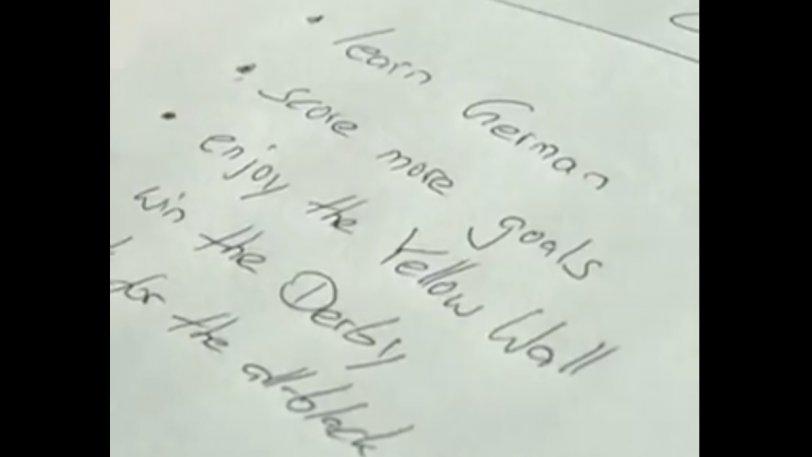 • learn German
• score more goals
• enjoy the Yellow Wall
win the Derby
for the all-black